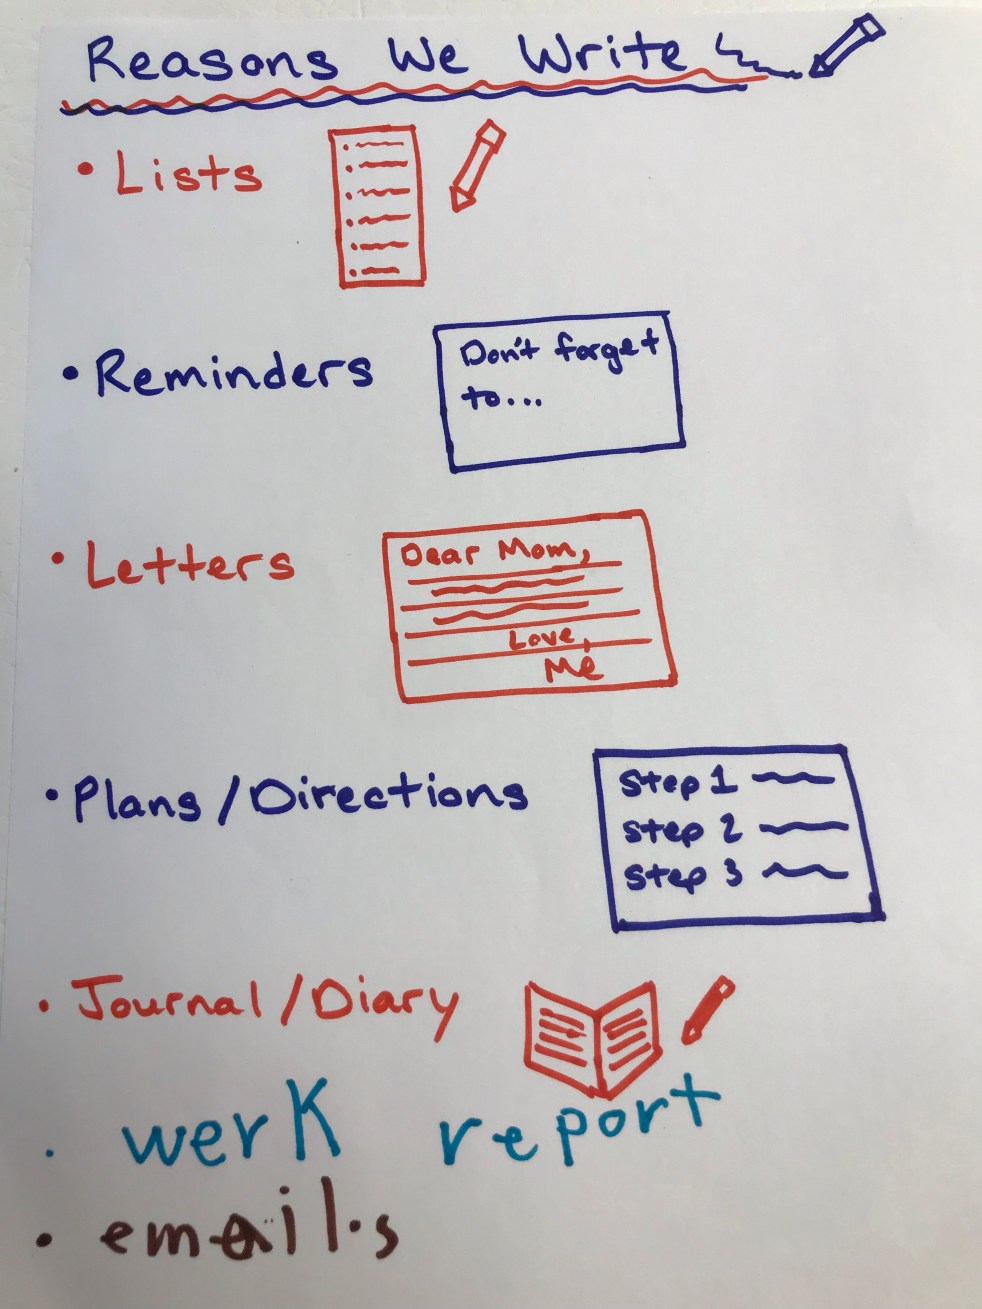 Reasons We Write
• Lists
• Reminders
Don't forget
to...
• Letters
Dear Mom,
Love,
Me
• Plans/Directions
Step 1
Step 2
Step 3
• Journal/Diary
• werk report
• email.s